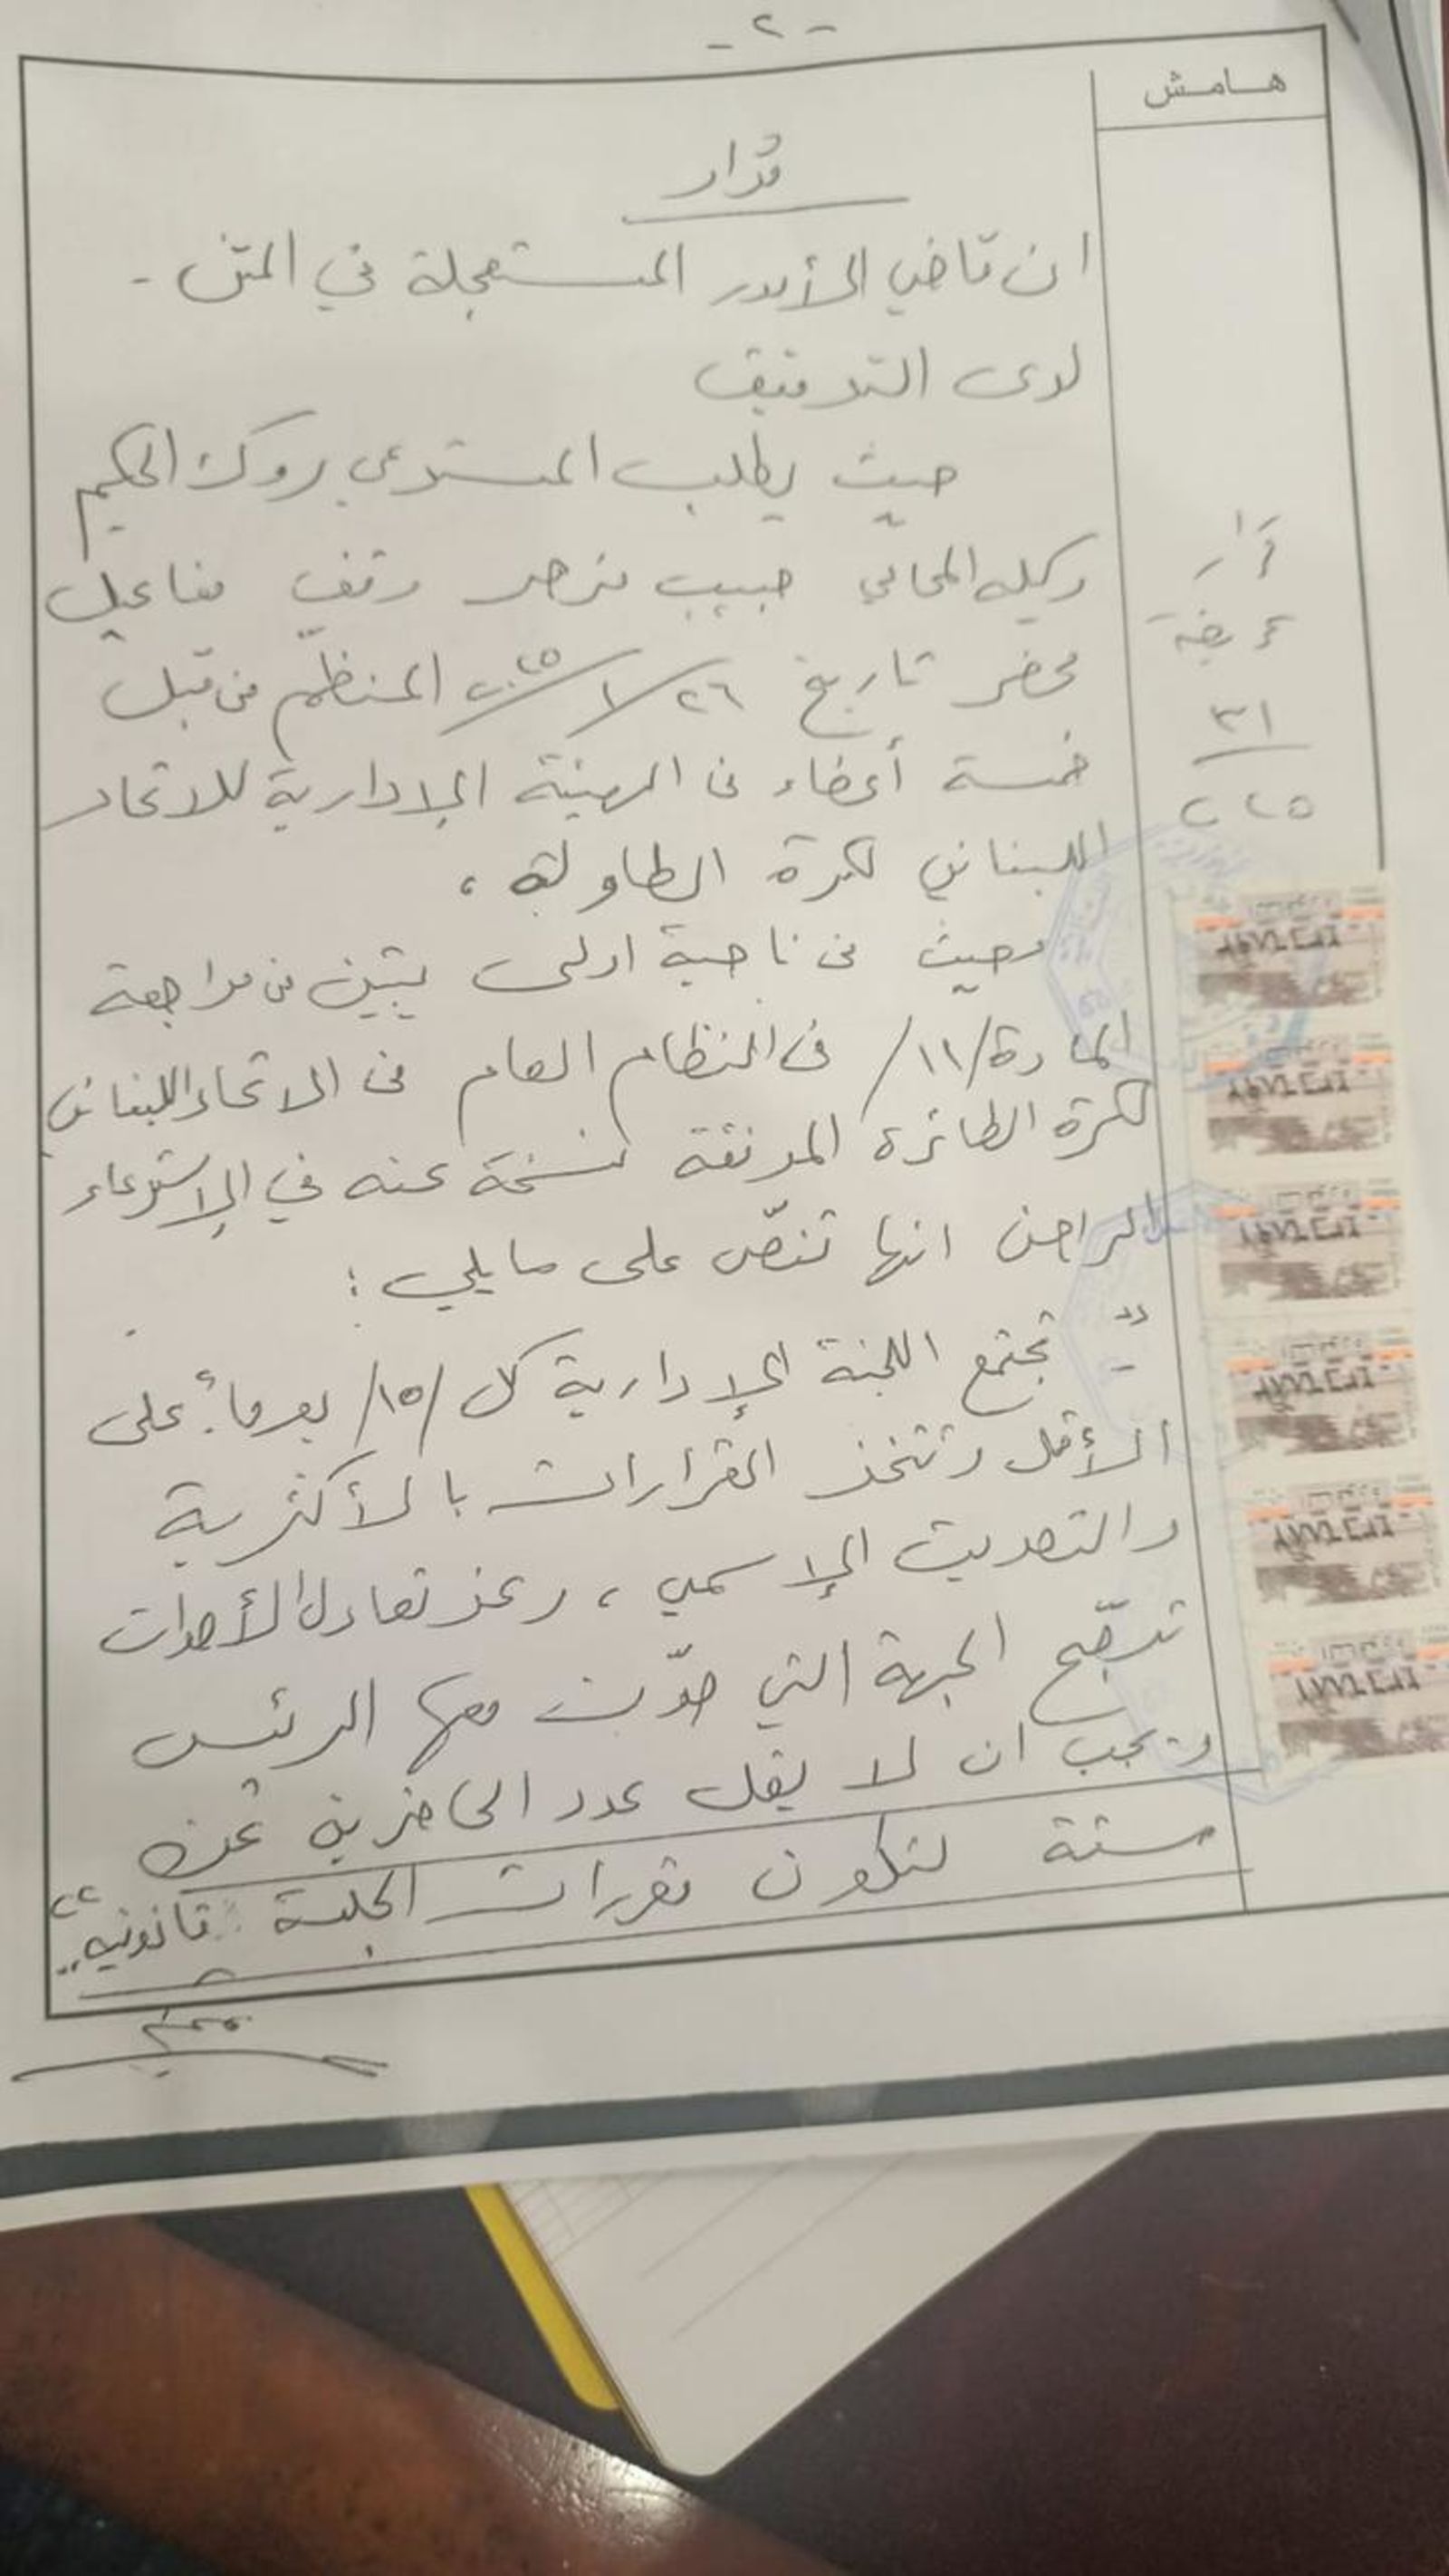 - ٢ -
هامش
قرار
ان قاضي الأمور المستعجلة في المتن -
لدى التدقيق
حيث يطلب المستدعي روك الحكيم
وكيله المحامي حبيب مزهر وقف مفاعيل
محضر تاريخ ٢٦/١/٢٠٢٥ المنظم من قبل
خمسة أعضاء من الهيئة الإدارية للاتحاد
اللبناني لكرة الطاولة،
وحيث من ناحية اولى يتبين من مراجعة
المادة/١١/ من النظام العام من الاتحاد اللبناني
لكرة الطائرة المرفقة نسخة عنه في الإستدعاء
الراهن انها تنصّ على مايلي:
"- تجتمع اللجنة الإدارية كل /١٥/ يوماً على
الأقل وتتخذ القرارات بالأكثرية
والتصويت الإسمي، وعند تعادل الأصوات
ترجّح الجهة التي صوّت معها الرئيس
ويجب ان لا يقل عدد الحاضرين عن
ستة لتكون مقررات الجلسة قانونية"
قرار
عريضة
٣١
٢٠٢٥